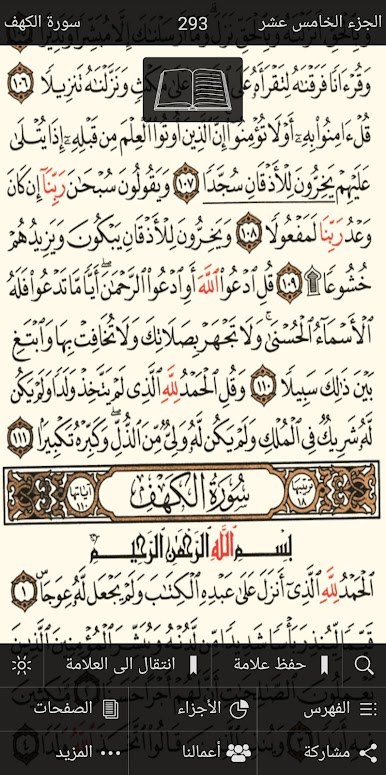 الجزء الخامس عشر
293
سورة الكهف
وَقُرْءَانًا فَرَقْنَٰهُ لِتَقْرَأَهُۥ عَلَىٰ مُكْثٍ وَنَزَّلْنَٰهُ تَنزِيلًا ١٠٦
قُلْ ءَامِنُوا۟ بِهِۦٓ أَوْ لَا تُؤْمِنُوٓا۟ إِنَّ ٱلَّذِينَ أُوتُوا۟ ٱلْعِلْمَ مِن قَبْلِهِۦٓ إِذَا يُتْلَىٰ
عَلَيْهِمْ يَخِرُّونَ لِلْأَذْقَانِ سُجَّدًا ١٠٧ وَيَقُولُونَ سُبْحَٰنَ رَبِّنَآ إِن كَانَ
وَعْدُ رَبِّنَا لَمَفْعُولًا ١٠٨ وَيَخِرُّونَ لِلْأَذْقَانِ يَبْكُونَ وَيَزِيدُهُمْ
خُشُوعًا ۩ ١٠٩ قُلِ ٱدْعُوا۟ ٱللَّهَ أَوِ ٱدْعُوا۟ ٱلرَّحْمَٰنَ أَيًّا مَّا تَدْعُوا۟ فَلَهُ
ٱلْأَسْمَآءُ ٱلْحُسْنَىٰ وَلَا تَجْهَرْ بِصَلَاتِكَ وَلَا تُخَافِتْ بِهَا وَٱبْتَغِ
بَيْنَ ذَٰلِكَ سَبِيلًا ١١٠ وَقُلِ ٱلْحَمْدُ لِلَّهِ ٱلَّذِى لَمْ يَتَّخِذْ وَلَدًا وَلَمْ يَكُن
لَّهُۥ شَرِيكٌ فِى ٱلْمُلْكِ وَلَمْ يَكُن لَّهُۥ وَلِىٌّ مِّنَ ٱلذُّلِّ وَكَبِّرْهُ تَكْبِيرًۢا ١١١
ترتيبها ١٨ سُورَةُ الكَهْفِ آياتها ١١٠
بِسْمِ ٱللَّهِ ٱلرَّحْمَٰنِ ٱلرَّحِيمِ
ٱلْحَمْدُ لِلَّهِ ٱلَّذِىٓ أَنزَلَ عَلَىٰ عَبْدِهِ ٱلْكِتَٰبَ وَلَمْ يَجْعَل لَّهُۥ عِوَجَا ١
حفظ علامة
انتقال الى العلامة
الفهرس
الأجزاء
الصفحات
مشاركة
أعمالنا
المزيد